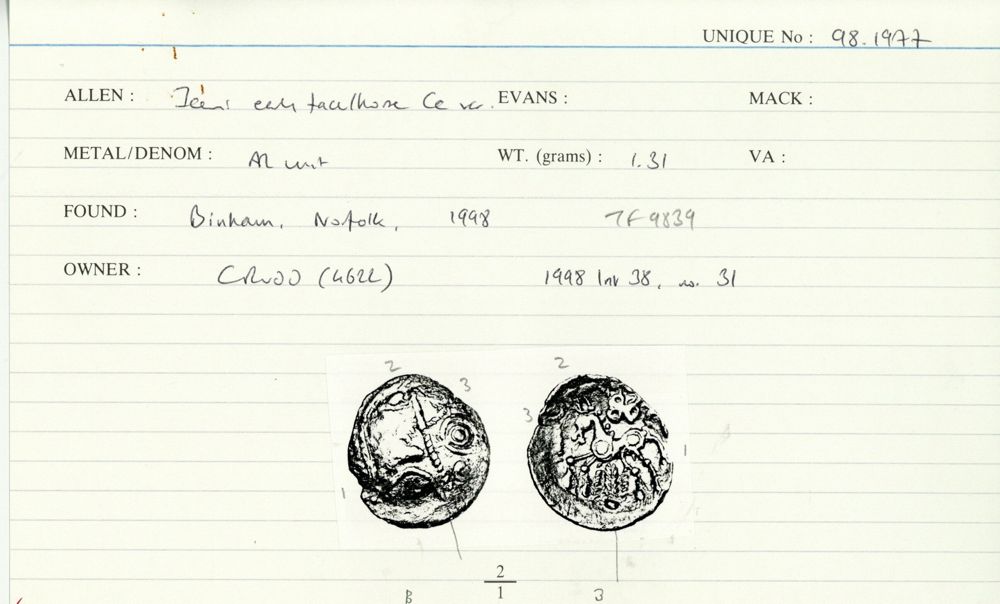 UNIQUE No : 98.1977
ALLEN : Iceni early face/horse Ce var. EVANS : MACK :
METAL/DENOM : AR unit WT. (grams) : 1.31 VA :
FOUND : Binham, Norfolk, 1998 TF 9839
OWNER : 1998 Inv 38, no. 31
2 3 2
3
1 1
2
1
B 3